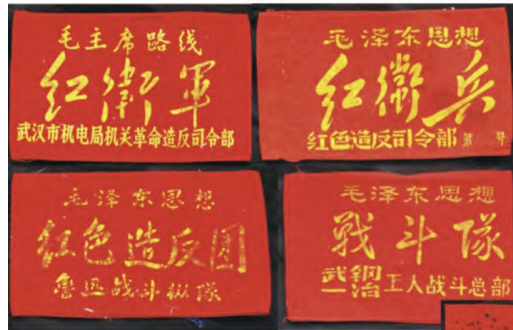 毛主席路线
红衛軍
武汉市机电局机关革命造反司令部
毛泽东思想
红衛兵
红色造反司令部第 号
毛泽东思想
红色造反团
鲁迅战斗纵隊
毛泽东思想
戰斗隊
武钢一冶工人战斗总部